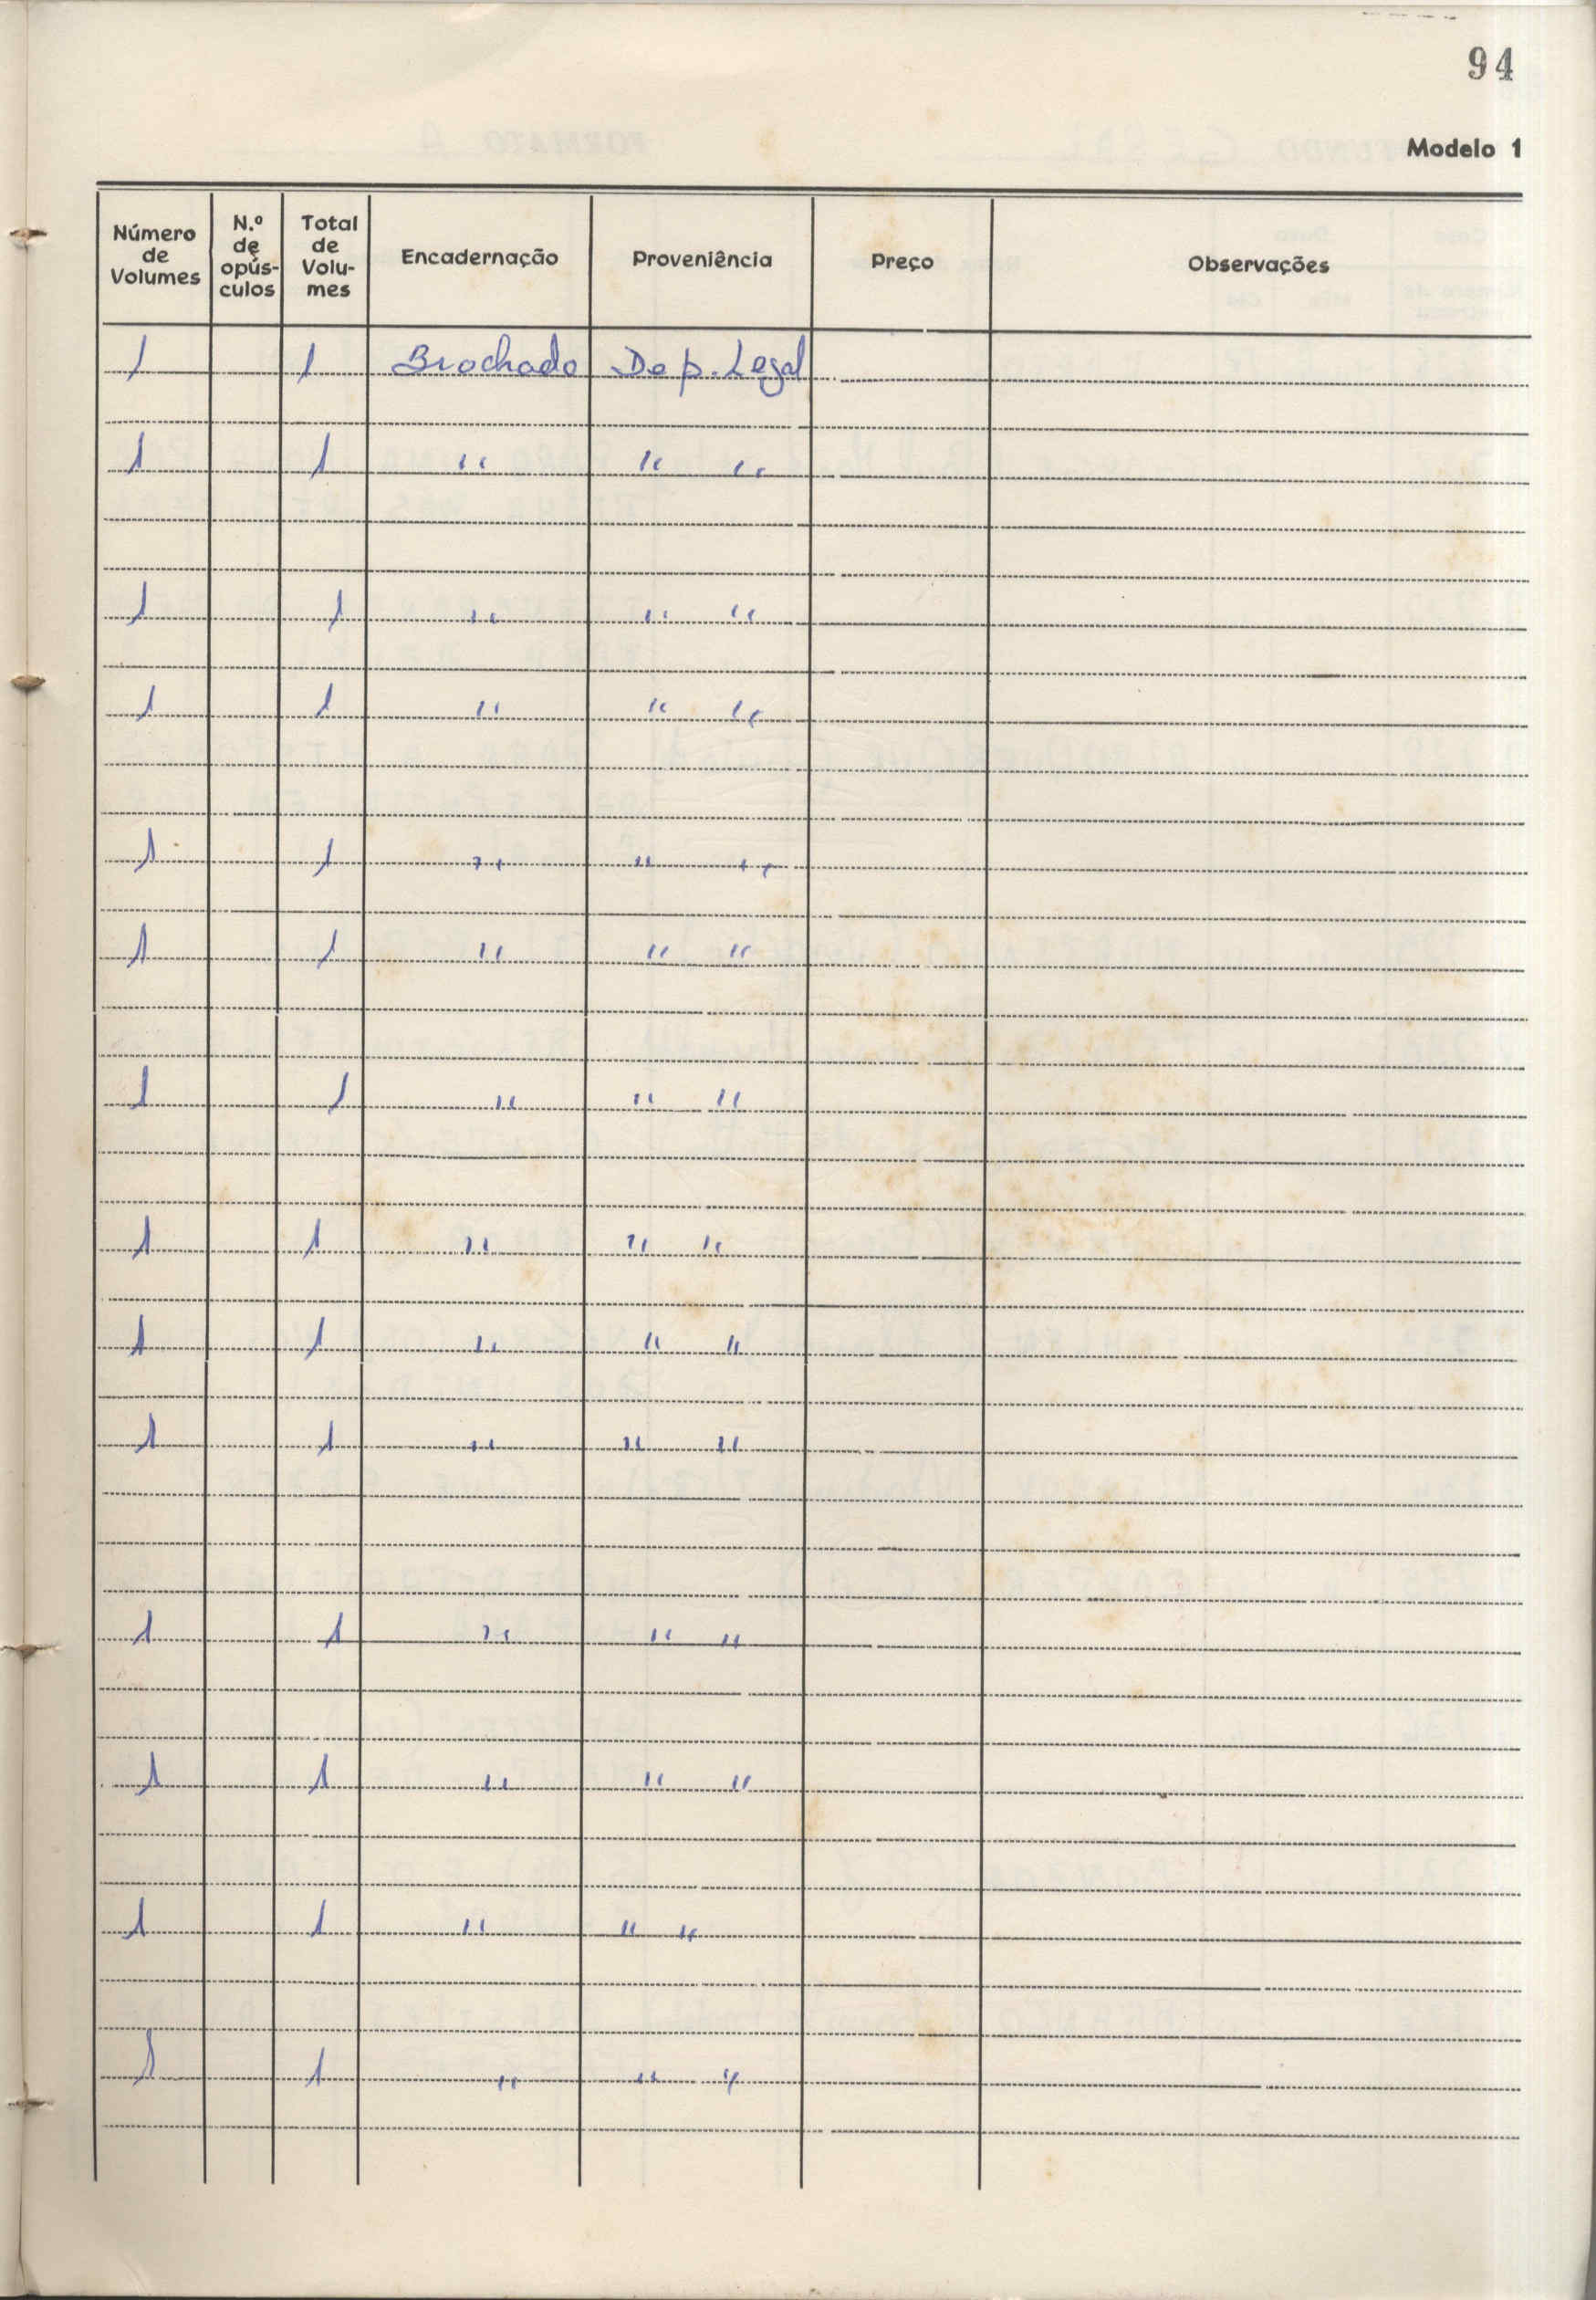 94
Modelo 1
Número de Volumes | N.º de opús-culos | Total de Volu-mes | Encadernação | Proveniência | Preço | Observações
1 | | 1 | Brochado | Dep. Legal
1 | | 1 | " | " "
1 | | 1 | " | " "
1 | | 1 | " | " "
1 | | 1 | " | " "
1 | | 1 | " | " "
1 | | 1 | " | " "
1 | | 1 | " | " "
1 | | 1 | " | " "
1 | | 1 | " | " "
1 | | 1 | " | " "
1 | | 1 | " | " "
1 | | 1 | " | " "
1 | | 1 | " | " "